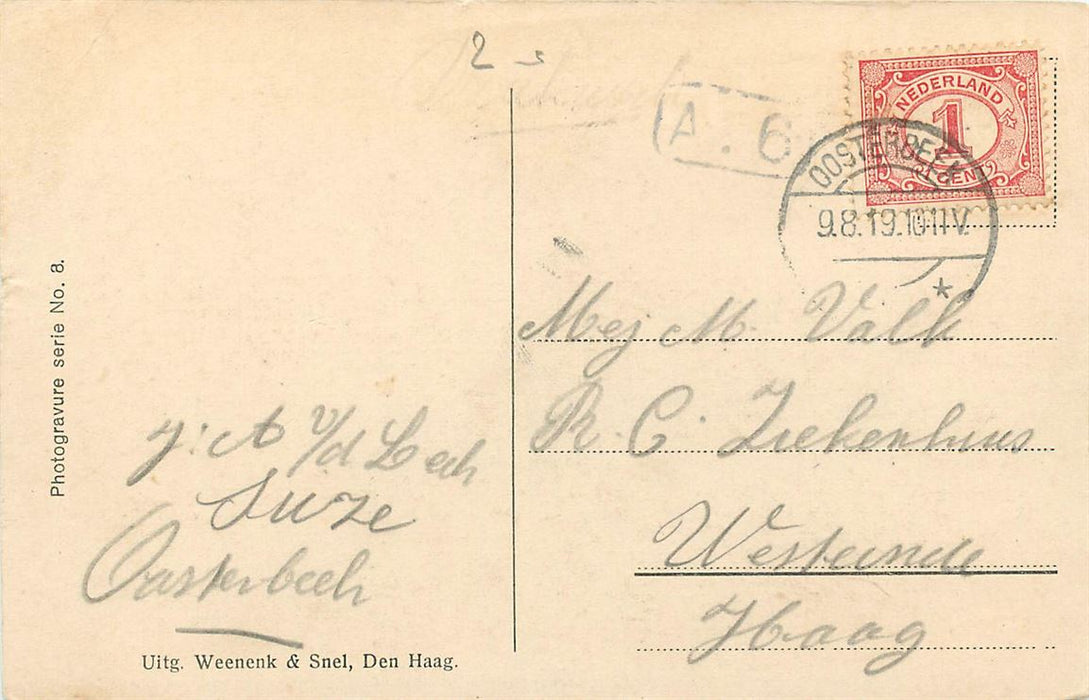 2
A. 6
NEDERLAND
1
(1 CENT)
OOSTERBEEK
9.8.19.10-11V.
*
Photogravure serie No. 8.
Mej M. Valk
R. C. Ziekenhuis
Westeinde
Haag
J: A v/d Beek
Suze
Oosterbeek
Uitg. Weenenk & Snel, Den Haag.